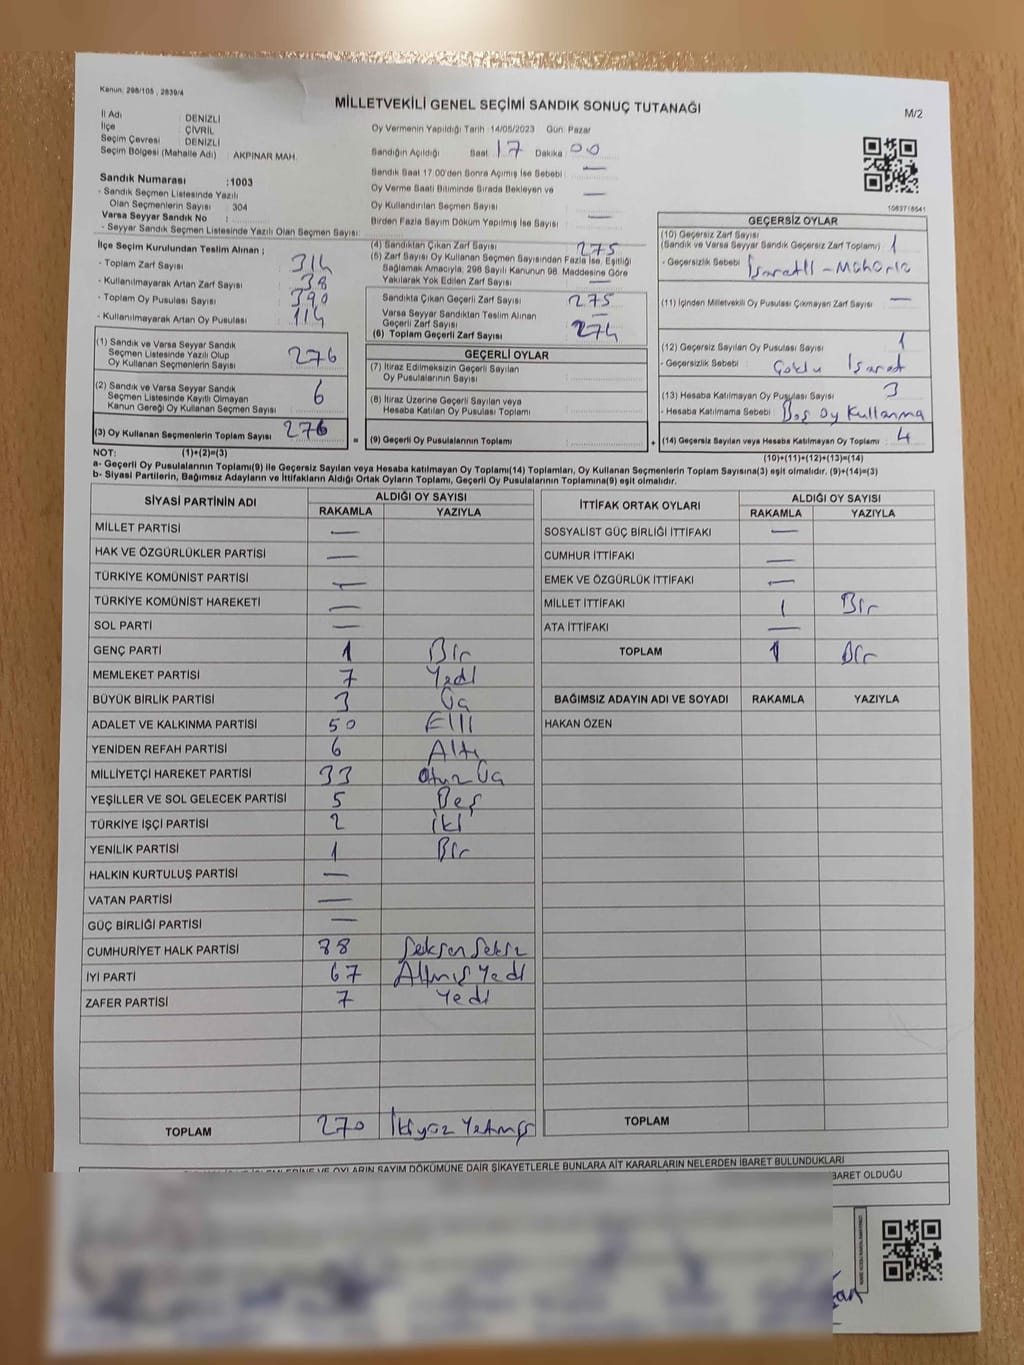 Kanun: 298/105 , 2839/4
MİLLETVEKİLİ GENEL SEÇİMİ SANDIK SONUÇ TUTANAĞI
M/2
İl Adı : DENİZLİ
İlçe : ÇİVRİL
Seçim Çevresi : DENİZLİ
Seçim Bölgesi (Mahalle Adı) : AKPINAR MAH.
Sandık Numarası :1003
- Sandık Seçmen Listesinde Yazılı
Olan Seçmenlerin Sayısı : 304
Varsa Seyyar Sandık No :
- Seyyar Sandık Seçmen Listesinde Yazılı Olan Seçmen Sayısı:
Oy Vermenin Yapıldığı Tarih :14/05/2023 Gün: Pazar
Sandığın Açıldığı Saat 17 Dakika 00
Sandık Saat 17:00'den Sonra Açımış İse Sebebi : —
Oy Verme Saati Bitiminde Sırada Bekleyen ve
Oy Kullandırılan Seçmen Sayısı : —
Birden Fazla Sayım Döküm Yapılmış İse Sayısı : —
1083718541
İlçe Seçim Kurulundan Teslim Alınan ;
- Toplam Zarf Sayısı : 314
- Kullanılmayarak Artan Zarf Sayısı : 38
- Toplam Oy Pusulası Sayısı : 390
- Kullanılmayarak Artan Oy Pusulası : 114
(1) Sandık ve Varsa Seyyar Sandık
Seçmen Listesinde Yazılı Olup
Oy Kullanan Seçmenlerin Sayısı : 276
(2) Sandık ve Varsa Seyyar Sandık
Seçmen Listesinde Kayıtlı Olmayan
Kanun Gereği Oy Kullanan Seçmen Sayısı : 6
(3) Oy Kullanan Seçmenlerin Toplam Sayısı : 276
(4) Sandıktan Çıkan Zarf Sayısı : 275
(5) Zarf Sayısı Oy Kullanan Seçmen Sayısından Fazla İse, Eşitliği
Sağlamak Amacıyla, 298 Sayılı Kanunun 98. Maddesine Göre
Yakılarak Yok Edilen Zarf Sayısı : —
Sandıkta Çıkan Geçerli Zarf Sayısı : 275
Varsa Seyyar Sandıktan Teslim Alınan
Geçerli Zarf Sayısı : —
(6) Toplam Geçerli Zarf Sayısı : 274
GEÇERLİ OYLAR
(7) İtiraz Edilmeksizin Geçerli Sayılan
Oy Pusulalarının Sayısı :
(8) İtiraz Üzerine Geçerli Sayılan veya
Hesaba Katılan Oy Pusulası Toplamı :
= (9) Geçerli Oy Pusulalarının Toplamı :
GEÇERSİZ OYLAR
(10) Geçersiz Zarf Sayısı
(Sandık ve Varsa Seyyar Sandık Geçersiz Zarf Toplamı) : 1
- Geçersizlik Sebebi : İşaretli - Mühürlü
(11) İçinden Milletvekili Oy Pusulası Çıkmayan Zarf Sayısı : —
(12) Geçersiz Sayılan Oy Pusulası Sayısı : 1
- Geçersizlik Sebebi : Çoklu İşaret
(13) Hesaba Katılmayan Oy Pusulası Sayısı : 3
- Hesaba Katılmama Sebebi : Boş Oy Kullanma
+ (14) Geçersiz Sayılan veya Hesaba Katılmayan Oy Toplamı : 4
NOT: (1)+(2)=(3)
(10)+(11)+(12)+(13)=(14)
a- Geçerli Oy Pusulalarının Toplamı(9) ile Geçersiz Sayılan veya Hesaba katılmayan Oy Toplamı(14) Toplamları, Oy Kullanan Seçmenlerin Toplam Sayısına(3) eşit olmalıdır. (9)+(14)=(3)
b- Siyasi Partilerin, Bağımsız Adayların ve İttifakların Aldığı Ortak Oyların Toplamı, Geçerli Oy Pusulalarının Toplamına(9) eşit olmalıdır.
SİYASİ PARTİNİN ADI ALDIĞI OY SAYISI
RAKAMLA YAZIYLA
MİLLET PARTİSİ —
HAK VE ÖZGÜRLÜKLER PARTİSİ —
TÜRKİYE KOMÜNİST PARTİSİ —
TÜRKİYE KOMÜNİST HAREKETİ —
SOL PARTİ —
GENÇ PARTİ 1 Bir
MEMLEKET PARTİSİ 7 Yedi
BÜYÜK BİRLİK PARTİSİ 3 Üç
ADALET VE KALKINMA PARTİSİ 50 Elli
YENİDEN REFAH PARTİSİ 6 Altı
MİLLİYETÇİ HAREKET PARTİSİ 33 Otuz Üç
YEŞİLLER VE SOL GELECEK PARTİSİ 5 Beş
TÜRKİYE İŞÇİ PARTİSİ 2 İki
YENİLİK PARTİSİ 1 Bir
HALKIN KURTULUŞ PARTİSİ —
VATAN PARTİSİ —
GÜÇ BİRLİĞİ PARTİSİ —
CUMHURİYET HALK PARTİSİ 88 Seksen Sekiz
İYİ PARTİ 67 Altmış Yedi
ZAFER PARTİSİ 7 Yedi
TOPLAM 270 İkiyüz Yetmiş
İTTİFAK ORTAK OYLARI ALDIĞI OY SAYISI
RAKAMLA YAZIYLA
SOSYALİST GÜÇ BİRLİĞİ İTTİFAKI —
CUMHUR İTTİFAKI —
EMEK VE ÖZGÜRLÜK İTTİFAKI —
MİLLET İTTİFAKI 1 Bir
ATA İTTİFAKI —
TOPLAM 1 Bir
BAĞIMSIZ ADAYIN ADI VE SOYADI RAKAMLA YAZIYLA
HAKAN ÖZEN
TOPLAM
VE OYLARIN SAYIM DÖKÜMÜNE DAİR ŞİKAYETLERLE BUNLARA AİT KARARLARIN NELERDEN İBARET BULUNDUKLARI
İBARET OLDUĞU